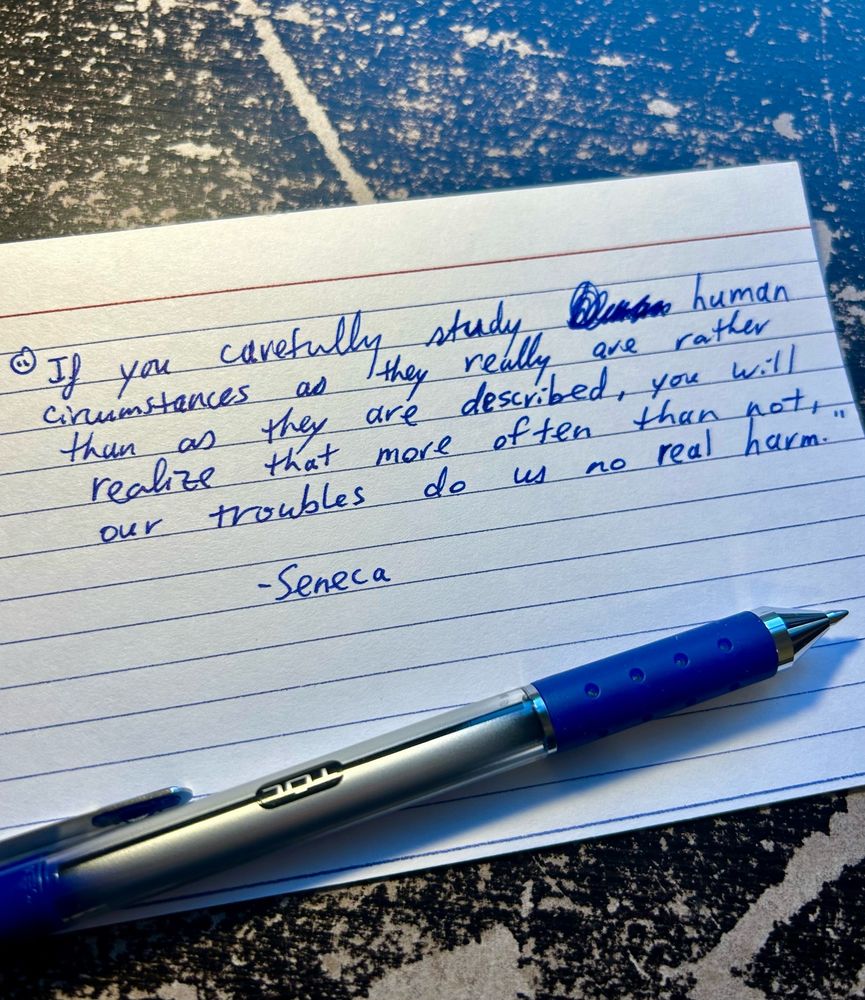 "If you carefully study human
circumstances as they really are rather
than as they are described, you will
realize that more often than not,
our troubles do us no real harm."
-Seneca
TUL